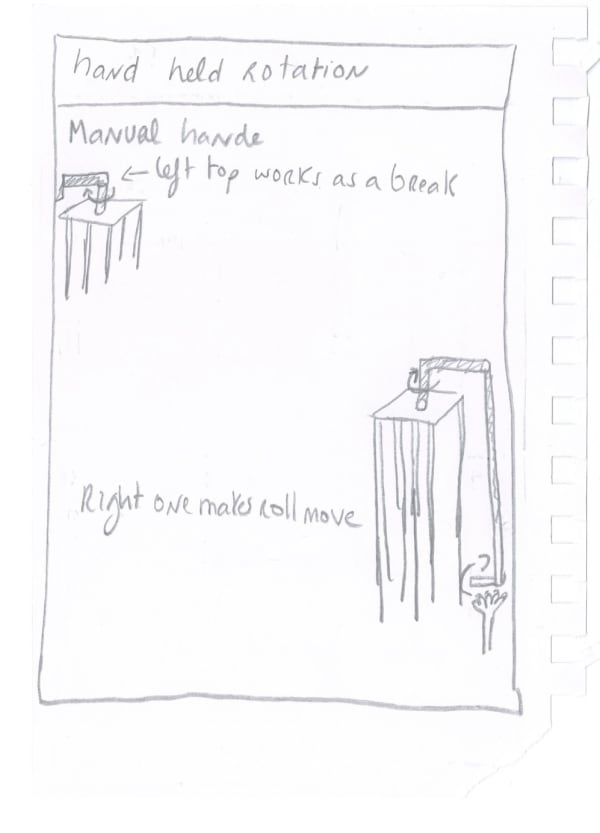 hand held Rotation
Manual hande
← left top works as a break
Right one makes roll move